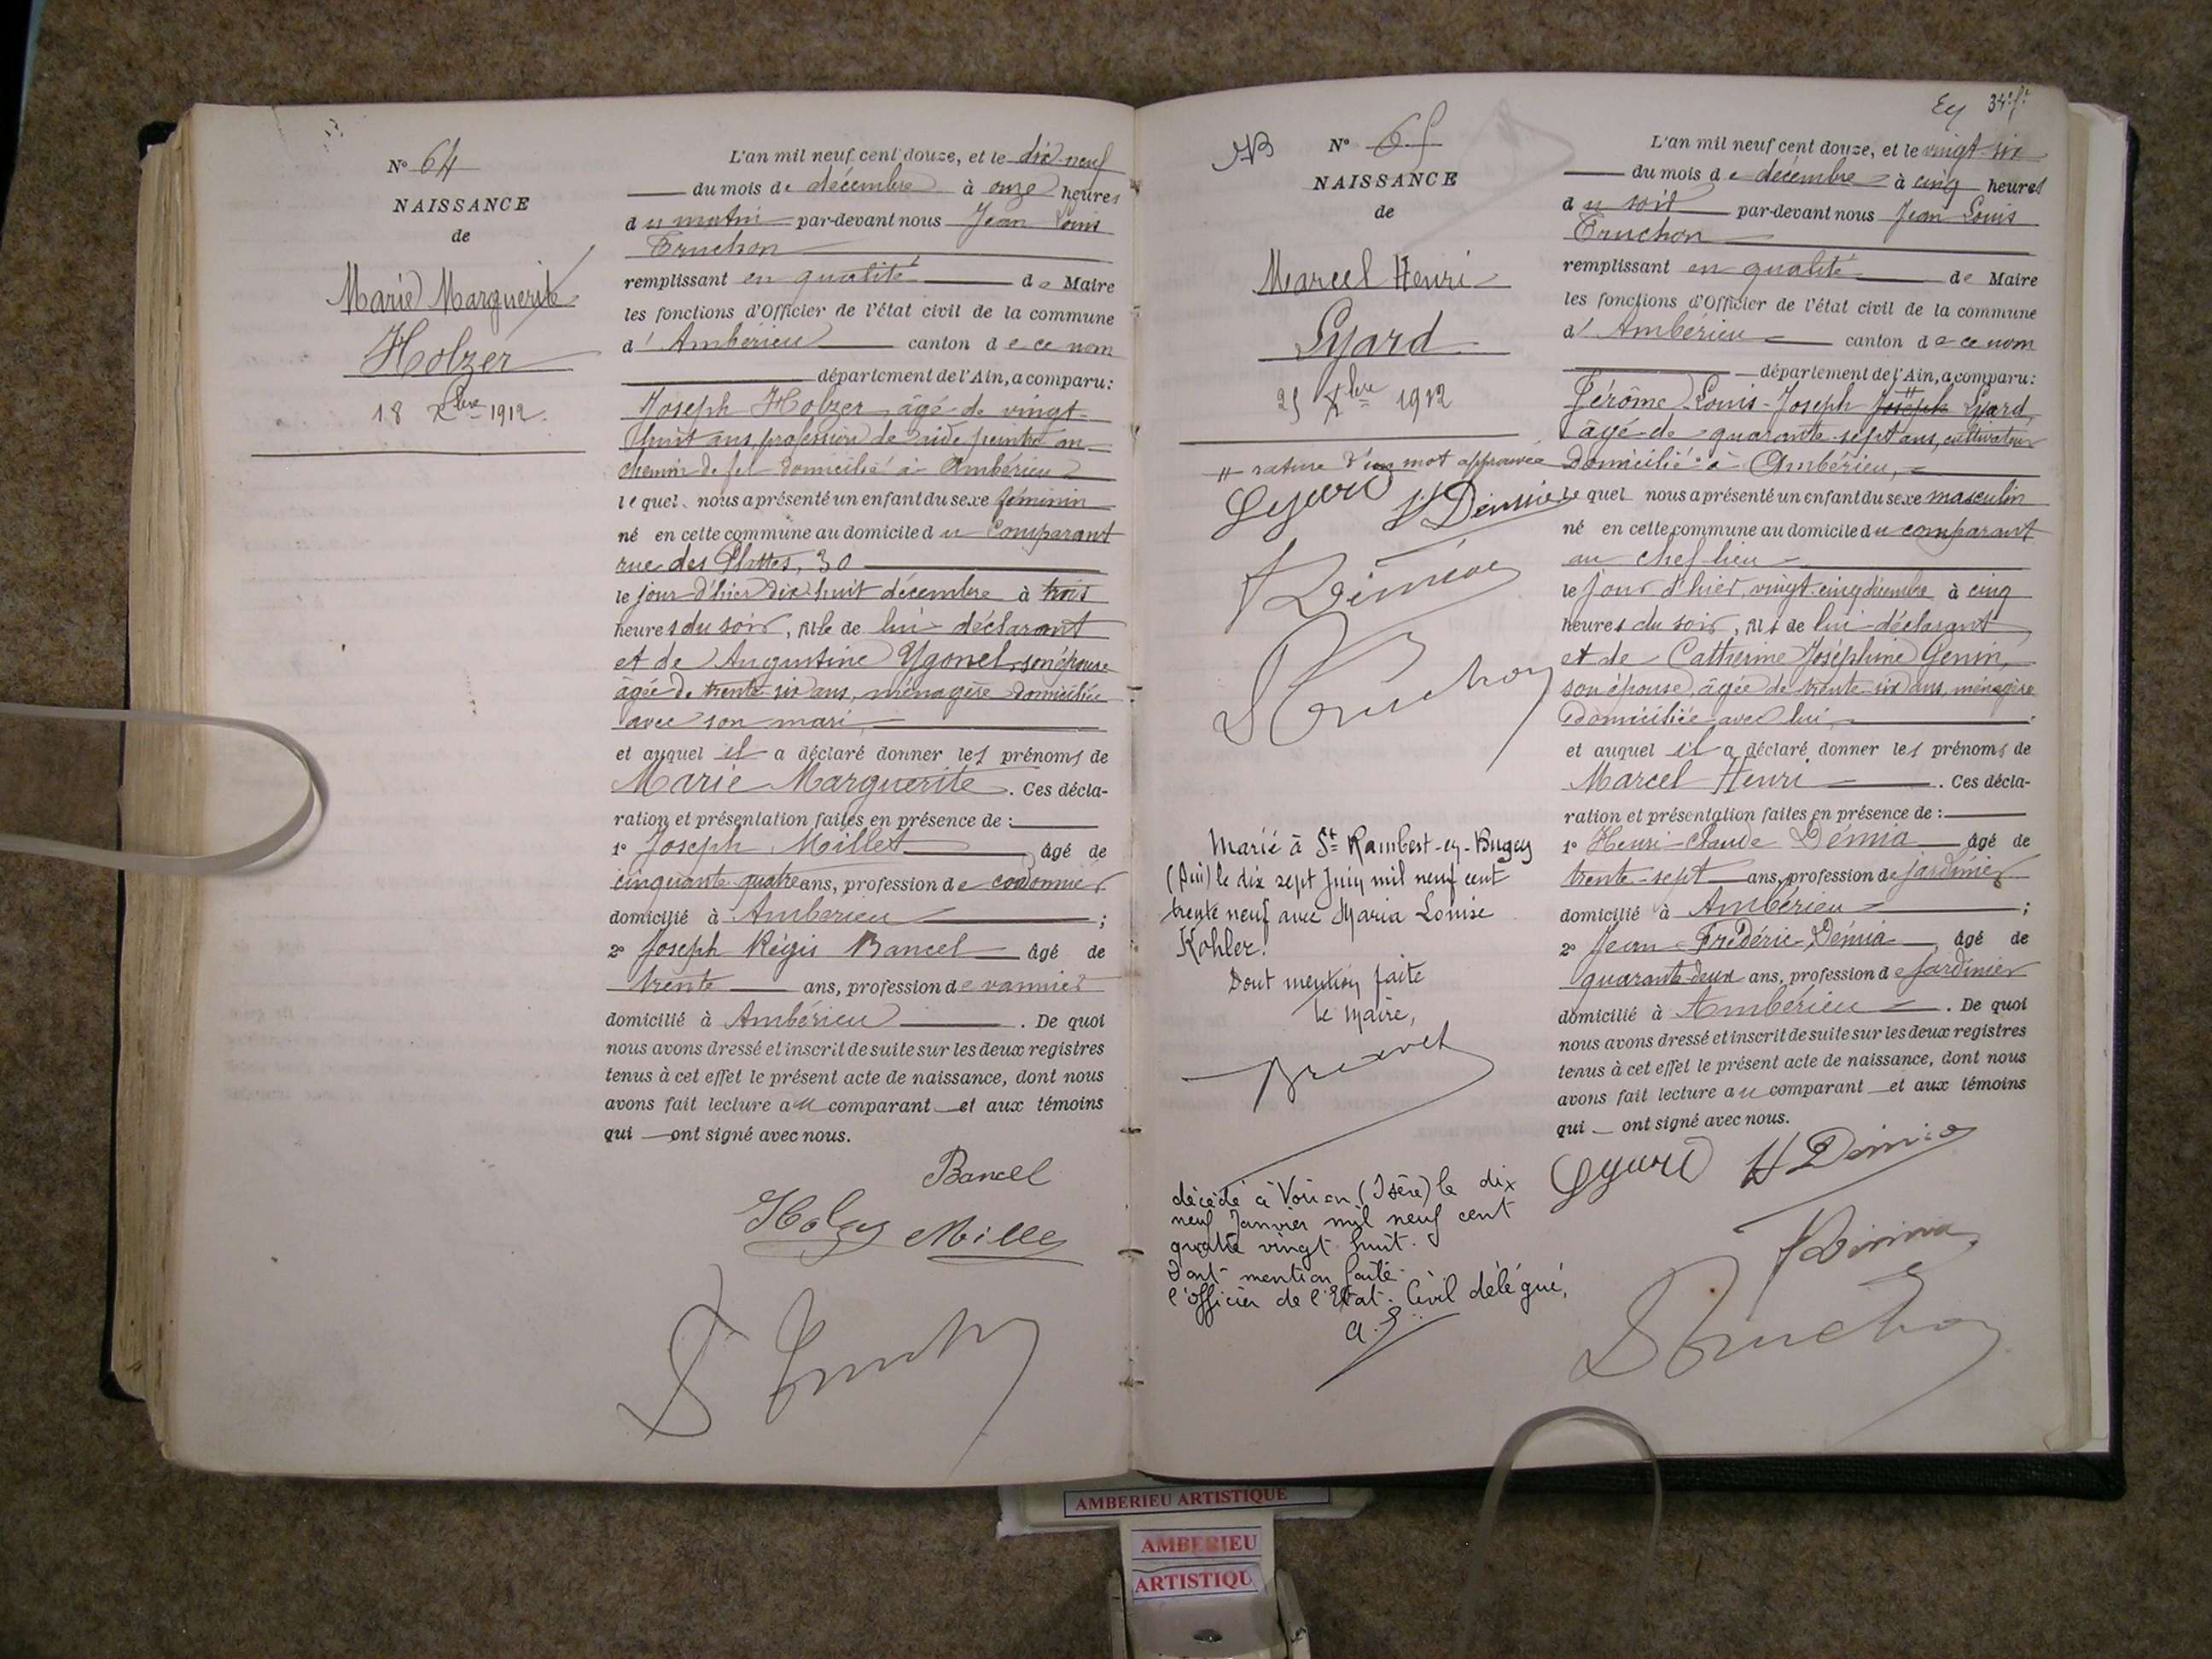 N° 64
NAISSANCE
de
Marie Marguerite
Holzer
18 Xbre 1912.
L'an mil neuf cent douze, et le dix-neuf
du mois de décembre à onze heures
du matin par-devant nous Jean Louis
Truchon
remplissant en qualité de Maire
les fonctions d'Officier de l'état civil de la commune
d' Ambérieu canton de ce nom
département de l'Ain, a comparu:
Joseph Holzer, âgé de vingt-
huit ans, profession de aide peintre au
chemin de fer domicilié à Ambérieu
lequel nous a présenté un enfant du sexe féminin
né en cette commune au domicile du comparant
rue des Plattes, 30
le jour d'hier dix huit décembre à trois
heures du soir, fille de lui-déclarant
et de Augustine Ygonel, son épouse
âgée de trente-six ans, ménagère domiciliée
avec son mari,
et auquel il a déclaré donner les prénoms de
Marie Marguerite. Ces décla-
ration et présentation faites en présence de :
1° Joseph Millet, âgé de
cinquante-quatre ans, profession de cordonnier
domicilié à Ambérieu ;
2° Joseph Régis Bancel âgé de
trente ans, profession de vannier
domicilié à Ambérieu . De quoi
nous avons dressé et inscrit de suite sur les deux registres
tenus à cet effet le présent acte de naissance, dont nous
avons fait lecture au comparant et aux témoins
qui ont signé avec nous.
Bancel
Holzer Millet
Truchon
34e f.t
N° 65
NAISSANCE
de
Marcel Henri
Lyard
25 Xbre 1912
rature d'un mot approuvée
Lyard H Démia
Démia
Truchon
Marié à St Rambert-en-Bugey
(Ain) le dix sept Juin mil neuf cent
trente neuf avec Maria Louise
Kohler.
Dont mention faite
Le Maire,
décédé à Voiron (Isère) le dix
neuf Janvier mil neuf cent
quatre vingt huit.
Dont mention faite.
l'officier de l'Etat-Civil délégué,
L'an mil neuf cent douze, et le vingt-six
du mois de décembre à cinq heures
du soir par-devant nous Jean Louis
Truchon
remplissant en qualité de Maire
les fonctions d'Officier de l'état civil de la commune
d' Ambérieu canton de ce nom
département de l'Ain, a comparu:
Jérôme-Louis-Joseph Joseph Lyard,
âgé de quarante-sept ans, cultivateur
domicilié à Ambérieu,
lequel nous a présenté un enfant du sexe masculin
né en cette commune au domicile du comparant
au chef lieu
le jour d'hier, vingt-cinq décembre à cinq
heures du soir, fils de lui-déclarant
et de Catherine Joséphine Genin,
son épouse, âgée de trente-six ans, ménagère
domiciliée avec lui,
et auquel il a déclaré donner les prénoms de
Marcel Henri . Ces décla-
ration et présentation faites en présence de :
1° Henri-Claude Démia âgé de
trente-sept ans, profession de jardinier
domicilié à Ambérieu ;
2° Jean-Frédéric Démia, âgé de
quarante-deux ans, profession de jardinier
domicilié à Ambérieu . De quoi
nous avons dressé et inscrit de suite sur les deux registres
tenus à cet effet le présent acte de naissance, dont nous
avons fait lecture au comparant et aux témoins
qui ont signé avec nous.
Lyard H Démia
Démia
Truchon
AMBERIEU ARTISTIQUE
AMBERIEU
ARTISTIQU